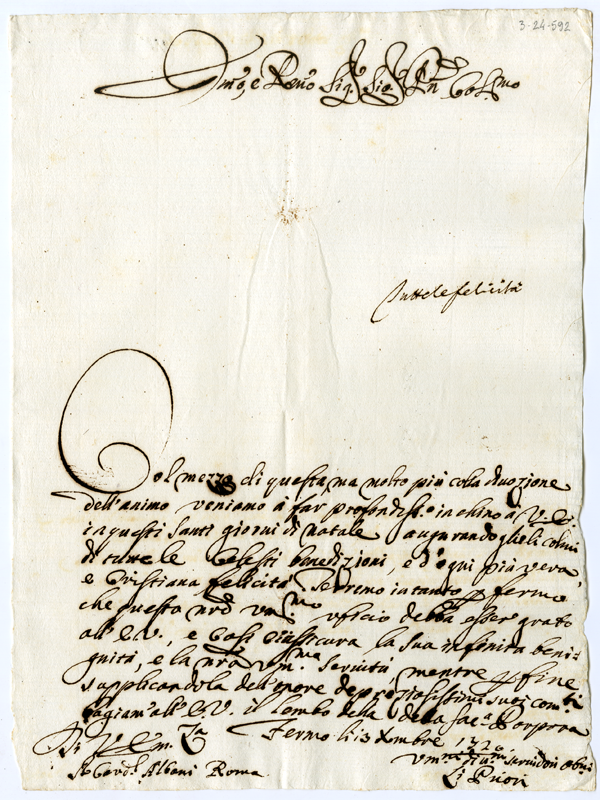 3-24-592
Em.o, e Rev.mo Sig.r Sig.r P.rn Col.mo
tutte le felicità
Col mezzo di questa, ma molto più colla divozione
dell'animo veniamo à far profondiss.o inchino à V. E.
in questi Santi giorni di Natale augurandogli li colmi
di tutte le Celesti benedizioni, e d'ogni più vera,
e Cristiana felicità. Terremo intanto p fermo,
che questo nr̃o um.mo ufficio debba esser grato
all'E.V., e Così ci assicura la sua infinita beni-
gnità, e la nr̃a um.ma servitù, mentre p fine
supplicandola dell'onore de preziosissimi suoi com.ti
bagiam'all'E.V. il lembo della Sac.a Porpora
Di V. Em.za Fermo li 13 Xmbre 1726
Um.mi servidori
S.r Card.l Albani Roma
Li Priori